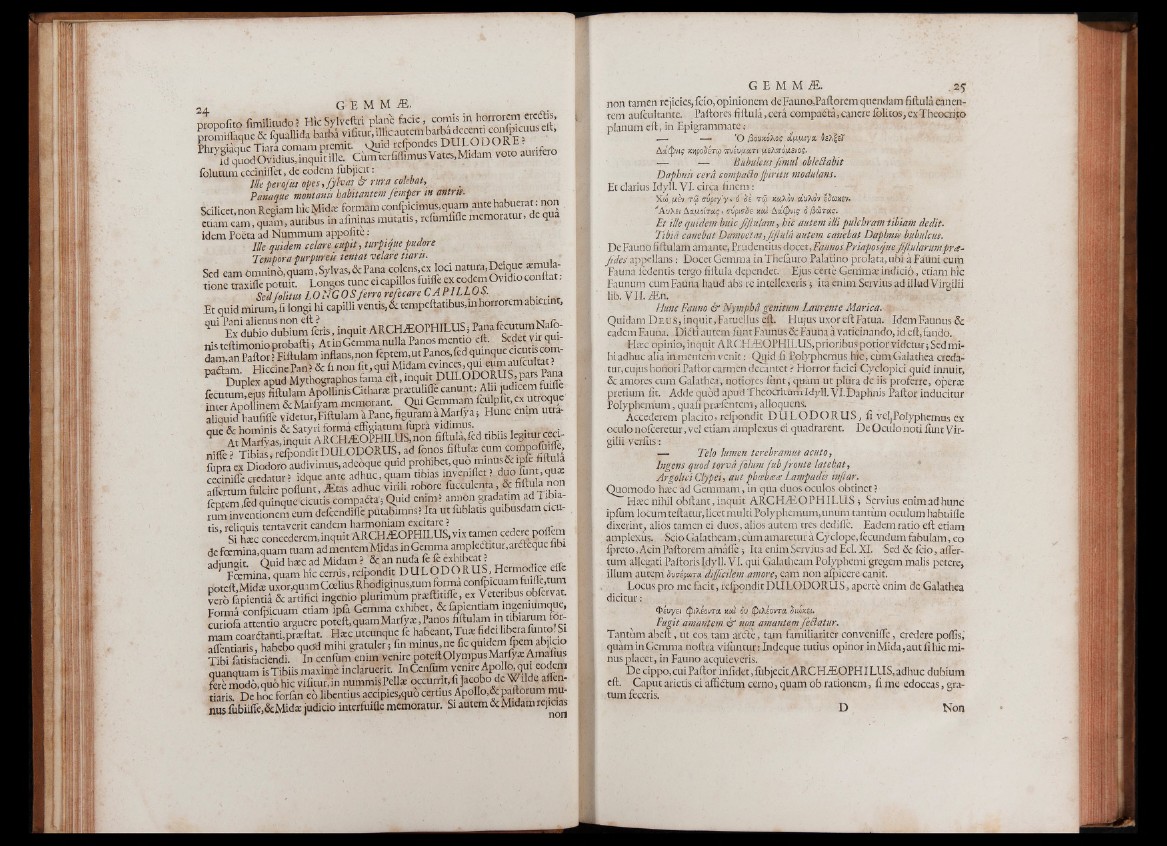 24
GEMMÆ.
propoſito ſimilitudo? Hic Sylveſtri planè facie, comis in horrorem erectis,
promiſſaque & ſquallida barbâ viſitur, illic autem barbâ decenti conſpicuus eſt,
Phrygiâque Tiarâ comam premit. Quid reſpondes DULODORE?
Id quod Ovidius, inquit ille. Cùm terſiſſimus Vates, Midam voto aurifero
ſolutum ceciniſſet, de eodem ſubjicit:
Ille peroſus opes, ſylvas & rura colebat,
Panaque montanis habitantem ſemper in antris.
Scilicet, non Regiam hîc Midæ formam conſpicimus, quam ante habuerat: non
etiam eam, quam, auribus in aſininas mutatis, reſumſiſſe memoratur, de quâ
idem Poëta ad Nummum appoſitè:
Ille quidem celare cupit, turpique pudore
Tempora purpureis tentat velare tiaris.
Sed eam omninò, quam, Sylvas, & Pana colens, ex loci natura, Deique æmula-
tione traxiſſe potuit. Longos tunc ei capillos fuiſſe ex eodem Ovidio conſtat:
Sed ſolitus LONGOS ferro reſecare CAPILLOS.
Et quid mirum, ſi longi hi capilli ventis, & tempeſtatibus, in horrorem abierint,
qui Pani alienus non eſt?
Ex dubio dubium ſeris, inquit ARCHÆOPHILUS; Pana ſecutum Naſo-
nis teſtimonio probaſti; At in Gemma nulla Panos mentio eſt. Sedet vir qui-
dam, an Paſtor? Fiſtulam inflans, non ſeptem, ut Panos, ſed quinque cicutis com-
pactam. Hiccine Pan? & ſi non ſit, qui Midam evinces, qui eum auſcultat?
Duplex apud Mythographos fama eſt, inquit DULODORUS, pars Pana
ſecutum, ejus fiſtulam Apollinis Citharæ prætuliſſe canunt: Alii judicem fuiſſe
inter Apollinem & Marſyam memorant. Qui Gemmam ſculpſit, ex utroque
aliquid hauſiſſe videtur, Fiſtulam à Pane, figuram à Marſya; Hunc enim utrâ-
que & hominis & Satyri formâ effigiatum ſuprà vidimus.
At Marſyas, inquit ARCHÆOPHILUS, non fiſtulâ, ſed tibiis legitur ceci-
niſſe? Tibias, reſpondit DULODORUS, ad ſonos fiſtulæ cum compoſuiſſe,
ſupra ex Diodoro audivimus, adeòque quid prohibet, quò minus & ipſe fiſtulâ
ceciniſſe credatur? idque ante adhuc, quam tibias inveniſſet? duo ſunt, quæ
aſſertum fulcire poſſunt, Ætas adhuc virili robore ſucculenta, & fiſtula non
ſeptem, ſed quinque cicutis compacta; Quid enim? annon gradatim ad Tibia-
rum inventionem eum deſcendiſſe putabimus? Ita ut ſublatis quibuſdam cicu-
tis, reliquis tentaverit eandem harmoniam excitare?
Si hæc concederem, inquit ARCHÆOPHILUS, vix tamen cedere poſſem
de fœmina, quam tuam ad mentem Midas in Gemma amplectitur, arctèque ſibi
adjungit. Quid hæc ad Midam? & an nuda ſe ſe exhibeat?
Fœmina, quam hic cernis, reſpondit DULODORUS, Hermodice eſſe
poteſt, Midæ uxor, quam Cœlius Rhodiginus, tum formâ conſpicuam fuiſſe, tum
verò ſapientiâ & artifici ingenio plurimùm præſtitiſſe, ex Veteribus obſervat.
Formâ conſpicuam etiam ipſa Gemma exhibet, & ſapientiam ingeniumque,
curioſa attentio arguere poteſt, quam Marſyæ, Panos fiſtulam in tibiarum for-
mam coarctanti, præſtat. Hæc utcunque ſe habeant, Tuæ fidei libera ſunto! Si
aſſentiaris, habebo quòd mihi gratuler; ſin minus, ne ſic quidem ſpem abjicio
Tibi ſatisfaciendi. In cenſum enim venire poteſt Olympus Marſyæ Amaſius
quanquam is Tibiis maximè inclaruerit. In Cenſum venire Apollo, qui eodem
ferè modo, quò hic viſitur, in nummis Pellæ occurrit, ſi Jacobo de Wilde aſſen-
tiaris. De hoc forſan eò libentius accipies, quò certius Apollo, & paſtorum mu-
nus ſubiiſſe, & Midæ judicio interfuiſſe memoratur. Si autem & Midam rejicias
non
GEMMÆ.
25
non tamen rejicies, ſcio, opinionem de Fauno, Paſtorem quendam fiſtulâ canen-
tem auſcultante. Paſtores fiſtulâ, cerâ compactâ, canere ſolitos, ex Theocrito
planum eſt, in Epigrammate:
— — Ὁ βουκόλος ἄμμιγα θελξεῖ
Δάφνις κηροδέτῳ πνεύματι μελπόμενος.
— — Bubulcus ſimul oblectabit
Daphnis cerâ compacto ſpiritu modulans.
Et clariùs Idyll. VI. circa finem:
Χὠ μὲν τῷ σύριγγ', ὁ δὲ τῷ καλὸν αὐλὸν ἔδωκεν.
Αὔλει Δαμοίτας, σύρισδε καὶ Δάφνις ὁ βώτας.
Et ille quidem huic fiſtulam, hic autem illi pulchram tibiam dedit.
Tibiâ canebat Damoetas, fiſtulâ autem canebat Daphnis bubulcus.
De Fauno fiſtulam amante, Prudentius docet, Faunos Priapoſque fiſtularum præ-
ſides appellans: Docet Gemma in Theſauro Palatino prolata, ubi à Fauni cum
Fauna ſedentis tergo fiſtula dependet. Ejus certè Gemmæ indiciò, etiam hic
Faunum cum Fauna haud abs re intellexeris; ita enim Servius ad illud Virgilii
lib. VII. Æn.
Hunc Fauno & Nymphâ genitum Laurente Marica.
Quidam DEUS, inquit, Fatuellus eſt. Hujus uxor eſt Fatua. Idem Faunus &
eadem Fauna. Dicti autem ſunt Faunus & Fauna à vaticinando, id eſt, fando.
Hæc opinio, inquit ARCHÆOPHILUS, prioribus potior videtur; Sed mi-
hi adhuc alia in mentem venit: Quid ſi Polyphemus hic, cùm Galathea creda-
tur, cujus honori Paſtor carmen decantet? Horror faciei Cyclopici quid innuit,
& amores cum Galathea, notiores ſunt, quàm ut plura de iis proferre, operæ
pretium ſit. Adde quòd apud Theocritum Idyll. VI. Daphnis Paſtor inducitur
Polyphemum, quaſi præſentem, alloquens.
Accederem placito, reſpondit DULODORUS, ſi vel, Polyphemus ex
oculo noſceretur, vel etiam amplexus ei quadrarent. De Oculo noti ſunt Vir-
gilii verſus:
— Telo lumen terebramus acuto,
Ingens quod torvâ ſolum ſub fronte latebat,
Argolici Clypei, aut phœbeæ Lampadis inſtar.
Quomodo hæc ad Gemmam, in qua duos oculos obtinet?
Hæc nihil obſtant, inquit ARCHÆOPHILUS; Servius enim ad hunc
ipſum locum teſtatur, licet multi Polyphemum, unum tantùm oculum habuiſſe
dixerint, alios tamen ei duos, alios autem tres dediſſe. Eadem ratio eſt etiam
amplexûs. Scio Galatheam, cùm amaretur à Cyclope, ſecundum fabulam, eo
ſpreto, Acin Paſtorem amâſſe; Ita enim Servius ad Ecl. XI. Sed & ſcio, aſſer-
tum allegati Paſtoris Idyll. VI. qui Galatheam Polyphemi gregem malis petere,
illum autem δυσέρωτα difficilem amore, eam non aſpicere canit.
Locus pro me facit, reſpondit DULODORUS, apertè enim de Galathea
dicitur:
Φεύγει φιλέοντα καὶ οὐ φιλέοντα διώκει.
Fugit amantem & non amantem ſectatur.
Tantùm abeſt, ut eos tam arctè, tam familiariter conveniſſe, credere poſſis,
quàm in Gemma noſtra viſuntur: Indeque tutius opinor in Mida, aut ſi hic mi-
nus placet, in Fauno acquieveris.
De cippo, cui Paſtor inſidet, ſubjecit ARCHÆOPHILUS, adhuc dubium
eſt. Caput arietis ei affictum cerno, quam ob rationem, ſi me edoceas, gra-
tum feceris.
D
Non